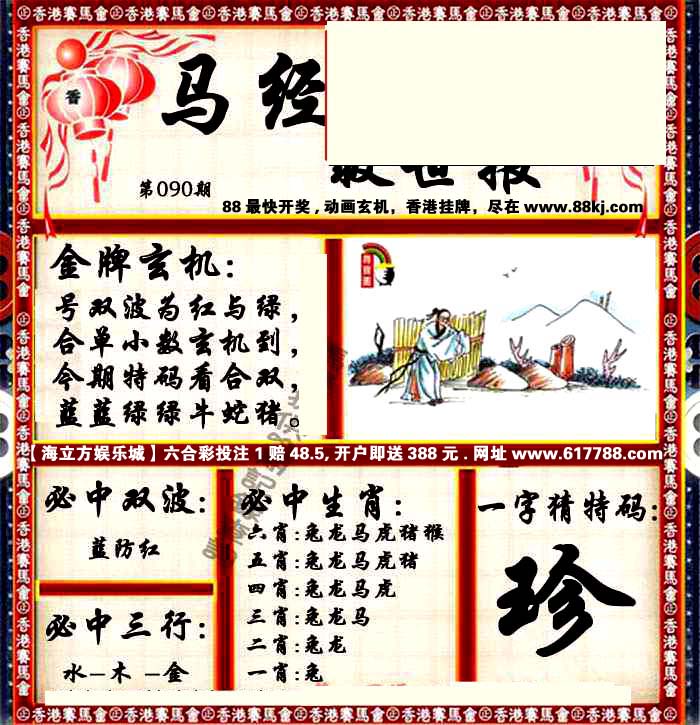 马经
救世报
第090期
88最快开奖，动画玄机，香港挂牌，尽在 www.88kj.com
金牌玄机：
号双波为红与绿，
合单小数玄机到，
今期特码看合双，
蓝蓝绿绿牛蛇猪。
【海立方娱乐城】六合彩投注1赔48.5,开户即送388元.网址 www.617788.com
必中双波：
蓝防红
必中三行：
水-木-金
必中生肖：
六肖:兔龙马虎猪猴
五肖:兔龙马虎猪
四肖:兔龙马虎
三肖:兔龙马
二肖:兔龙
一肖:兔
一字猜特码：
珍
香港賽馬會
香